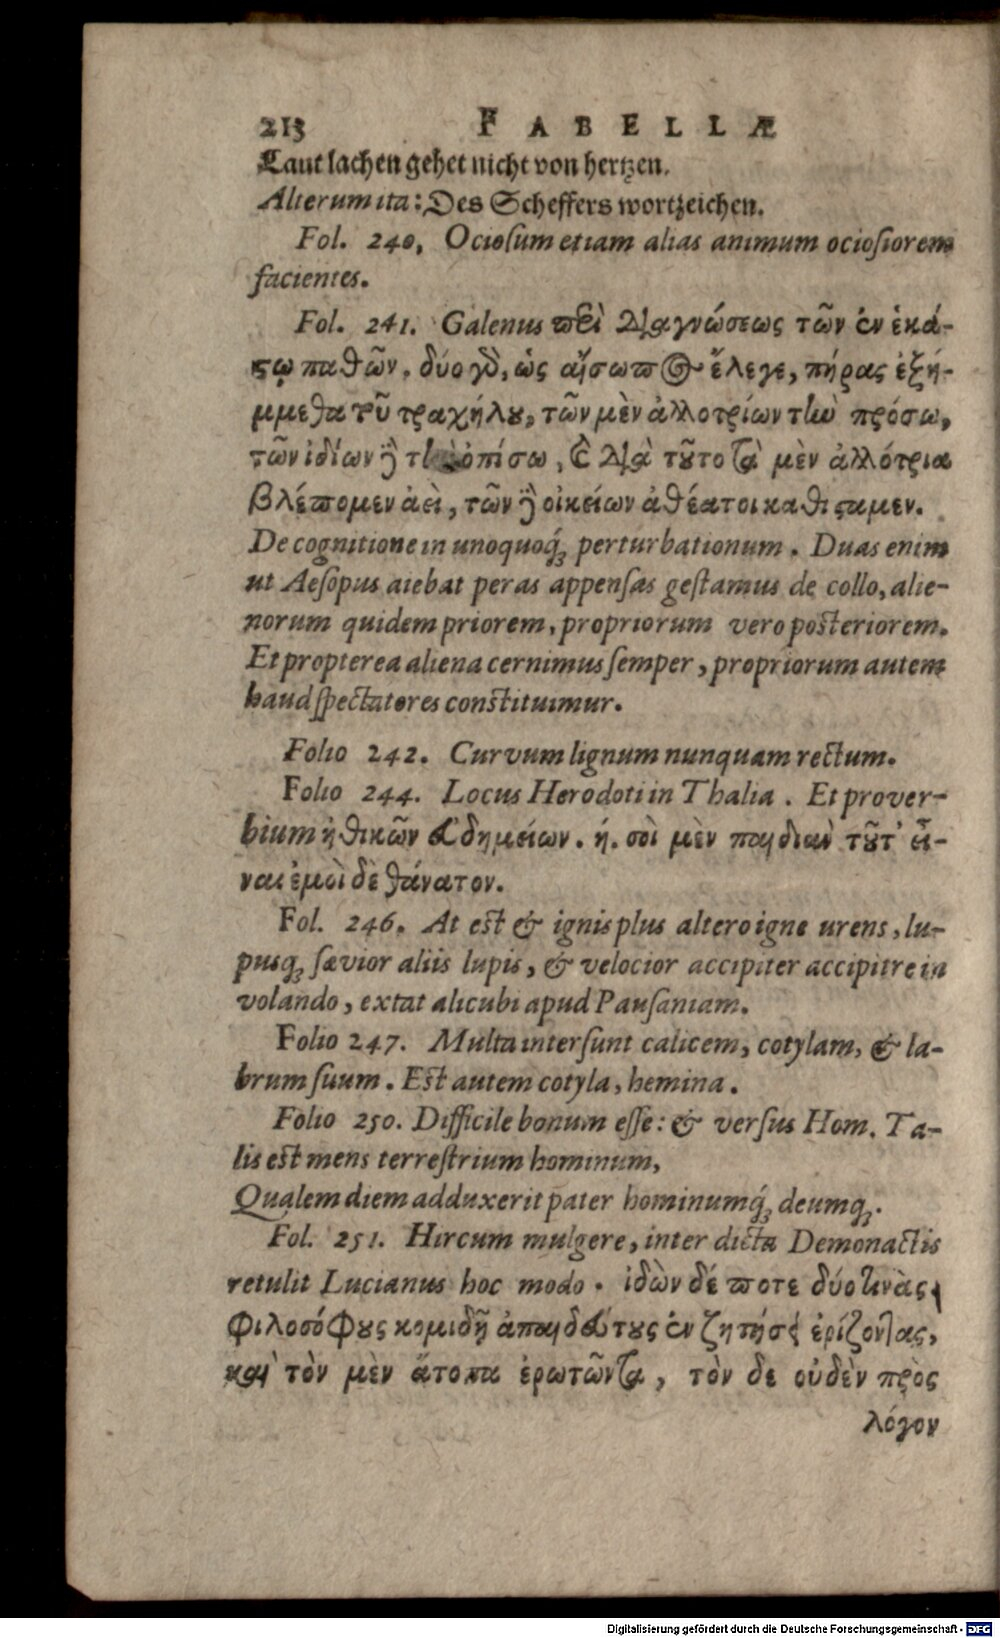 213 FABELLÆ
Laut lachen gehet nicht von hertzen.
Alterum ita: Des Scheffers wortzeichen.
Fol. 240, Ociosum etiam alias animum ociosiorem
facientes.
Fol. 241. Galenus περὶ Διαγνώσεως τῶν ἐν ἑκά-
στῳ παθῶν. δύο γὸ, ὡς αἴσωπος ἔλεγε, πήρας ἐξή-
μμεθα τοῦ τραχήλου, τῶν μὲν ἀλλοτρίων τὴν πρόσω,
τῶν ἰδίων ὃ τὴν ὀπίσω, καὶ Διὰ τοῦτο τὰ μὲν ἀλλότρια
βλέπομεν ἀεὶ, τῶν ὃ οἰκείων ἀθέατοι καθισταμεν.
De cognitione in unoquoq́; perturbationum. Duas enim
ut Aesopus aiebat peras appensas gestamus de collo, alie-
norum quidem priorem, propriorum vero posteriorem.
Et propterea aliena cernimus semper, propriorum autem
haud spectatores constituimur.
Folio 242. Curvum lignum nunquam rectum.
Folio 244. Locus Herodoti in Thalia. Et prover-
bium ἠθικῶν Ευδημείων. ή. σοὶ μὲν παιδιαὺ τοῦτ' εἶ-
ναι ἐμοὶ δὲ θάνατον.
Fol. 246. At est & ignis plus altero igne urens, lu-
pusq; sævior aliis lupis, & velocior accipiter accipitre in
volando, extat alicubi apud Pausaniam.
Folio 247. Multa intersunt calicem, cotylam, & la-
brum suum. Est autem cotyla, hemina.
Folio 250. Difficile bonum esse: & versus Hom. Ta-
lis est mens terrestrium hominum,
Qualem diem adduxerit pater hominumq́; deumq;.
Fol. 251. Hircum mulgere, inter dicta Demonactis
retulit Lucianus hoc modo. ἰδὼν δέ ποτε δύο τινὰς
φιλοσόφους κομιδῇ ἀπαιδεύτους ἐν ζητήσει ἐρίζοντας,
καὶ τὸν μὲν ἄτοπα ἐρωτῶντα, τὸν δε οὐδὲν πρὸς
λόγον
Digitalisierung gefördert durch die Deutsche Forschungsgemeinschaft - DFG